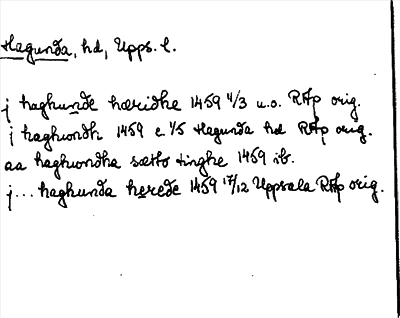 Hagunda, hd, Upps. l.
j haghunde hæridhe 1459 4/3 u.o. RAp orig.
j haghwndh 1459 e. 1/5 Hagunda hd RAp orig.
aa haghwndha sætto tinghe 1459 ib.
j... haghunda herede 1459 17/12 Uppsala RAp orig.